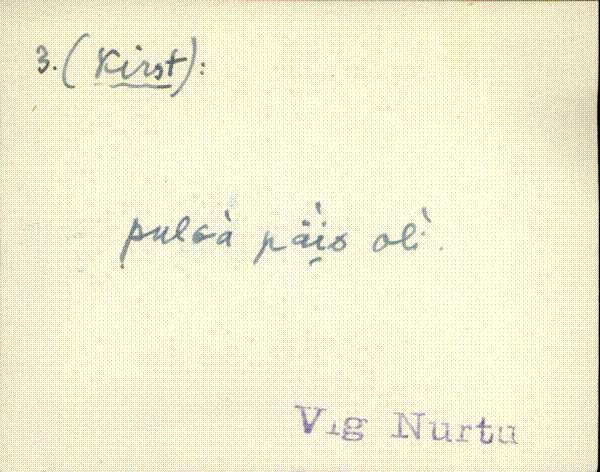 3. (Kirst):
pulsà päi̯s oli̇̀.
Vig Nurtu